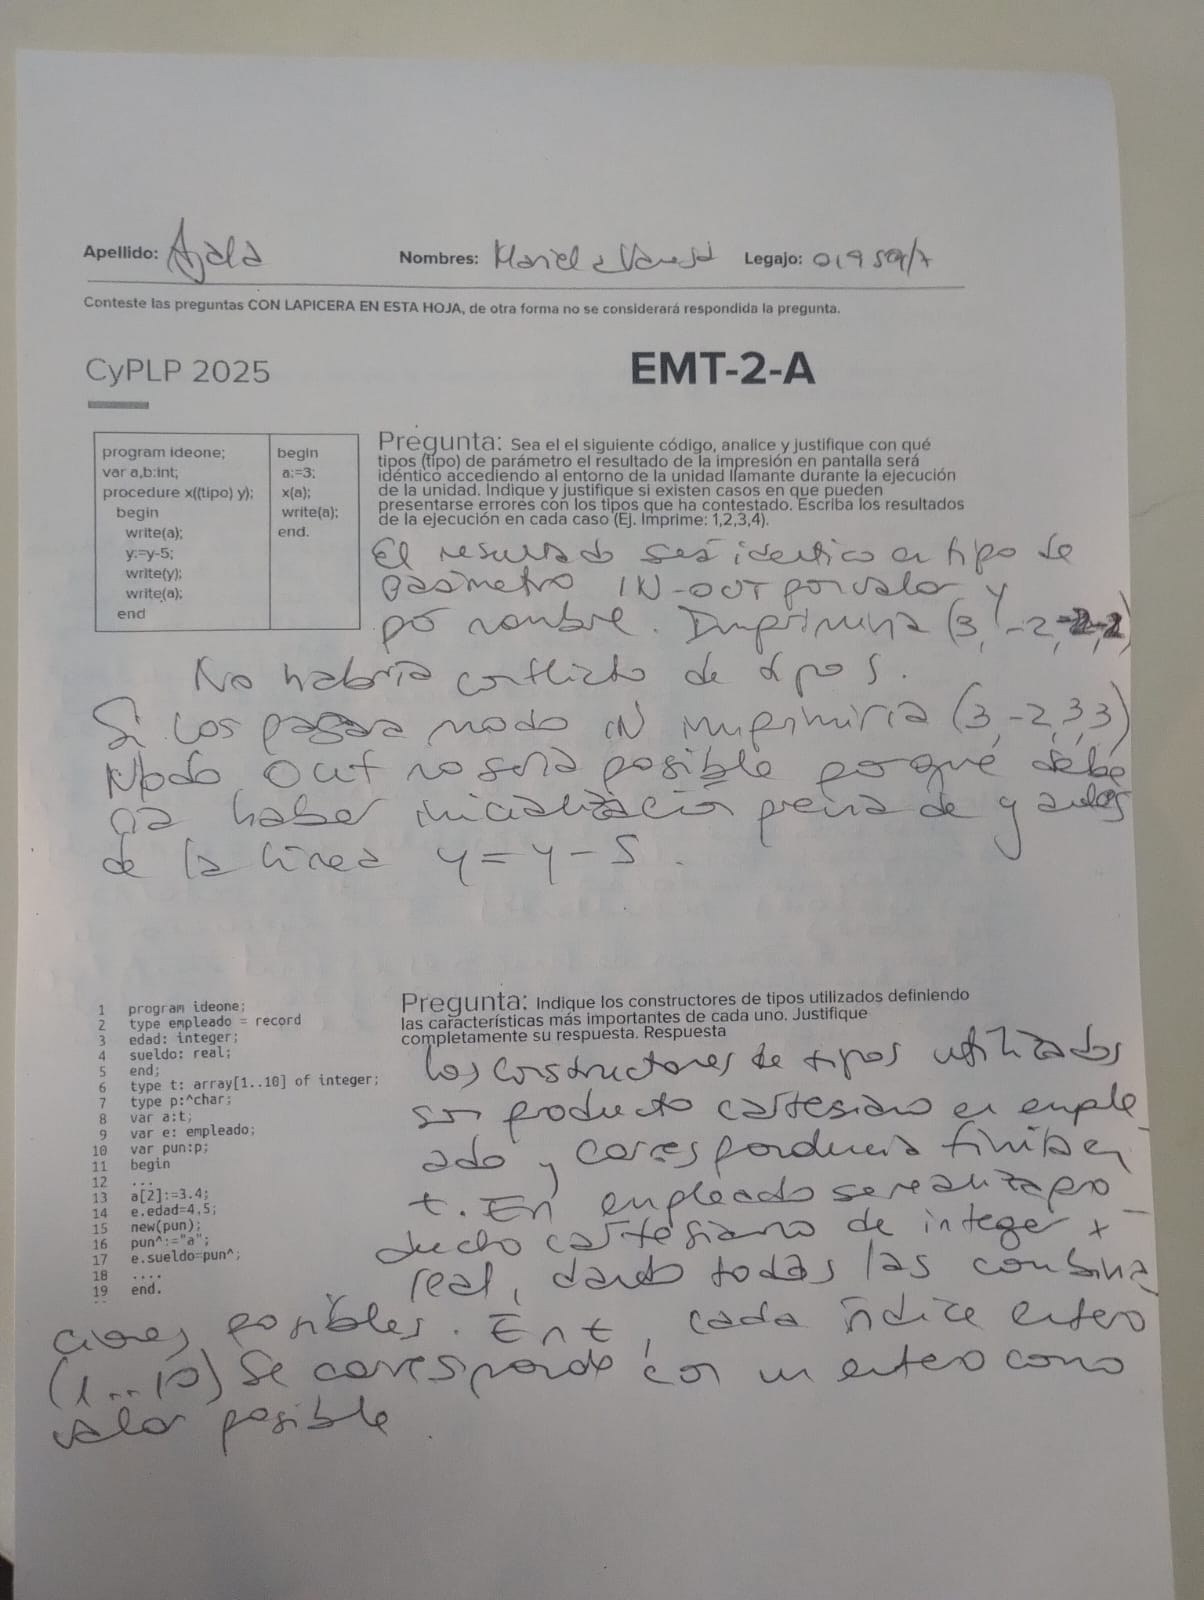 Apellido: Ayala Nombres: Mariela Legajo: 01959/7
Conteste las preguntas CON LAPICERA EN ESTA HOJA, de otra forma no se considerará respondida la pregunta.
CyPLP 2025
EMT-2-A
program ideone;
var a,b:int;
procedure x((tipo) y);
begin
write(a);
y:=y-5;
write(y);
write(a);
end
begin
a:=3;
x(a);
write(a);
end.
Pregunta: Sea el el siguiente código, analice y justifique con qué
tipos (tipo) de parámetro el resultado de la impresión en pantalla será
idéntico accediendo al entorno de la unidad llamante durante la ejecución
de la unidad. Indique y justifique si existen casos en que pueden
presentarse errores con los tipos que ha contestado. Escriba los resultados
de la ejecución en cada caso (Ej. Imprime: 1,2,3,4).
El resultado será identico en tipo de
parámetro IN-OUT por valor y
por nombre. Imprimiria (3, -2, -2, -2)
No habria conflicto de tipos.
Si los pasara modo IN imprimiria (3, -2, 3, 3)
Modo OUT no sería posible porqué debe
ria haber inicialización previa de y antes
de la linea y = y - 5.
1 program ideone;
2 type empleado = record
3 edad: integer;
4 sueldo: real;
5 end;
6 type t: array[1..10] of integer;
7 type p:^char;
8 var a:t;
9 var e: empleado;
10 var pun:p;
11 begin
12 ...
13 a[2]:=3.4;
14 e.edad=4.5;
15 new(pun);
16 pun^:="a";
17 e.sueldo=pun^;
18 ....
19 end.
Pregunta: Indique los constructores de tipos utilizados definiendo
las características más importantes de cada uno. Justifique
completamente su respuesta. Respuesta
Los constructores de tipos utilizados
son producto cartesiano en emple
ado y correspondencia finita en
t. En empleado se realiza pro
ducto cartesiano de integer x
real, dando todas las combina
ciones posibles. En t, cada índice entero
(1..10) se corresponde con un entero como
valor posible.